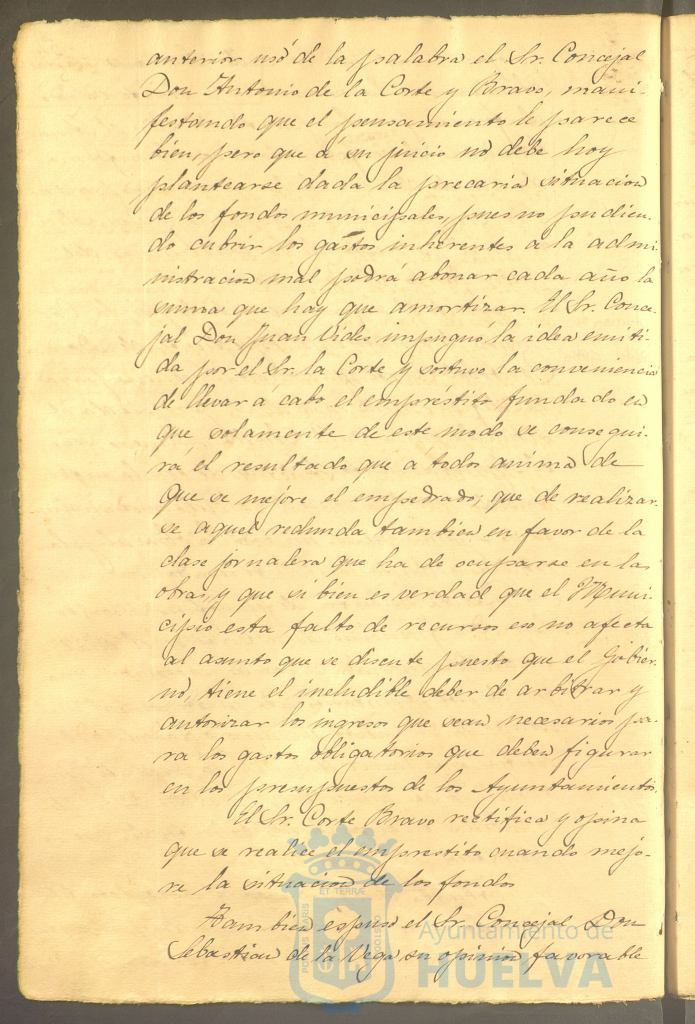 anterior usó de la palabra el Sr. Concejal
Don Antonio de la Corte y Bravo, mani-
festando que el pensamiento le parece
bien, pero que á su juicio no debe hoy
plantearse dada la precaria situacion
de los fondos municipales, pues no pudien-
do cubrir los gastos inherentes á la admi-
nistracion mal podrá abonar cada año la
suma que hay que amortizar. El Sr. Conce-
jal Don Juan Vides impugnó la idea emiti-
da por el Sr. la Corte y sostuvo la conveniencia
de llevar a cabo el empréstito fundado en
que solamente de este modo se consegui-
rá el resultado que á todos anima de
que se mejore el empedrado; que de realizar-
se aquel redunda tambien en favor de la
clase jornalera que ha de ocuparse en las
obras, y que si bien es verdad que el Muni-
cipio esta falto de recursos eso no afecta
al asunto que se discute puesto que el Gobier-
no, tiene el ineludible deber de arbitrar y
autorizar los ingresos que sean necesarios pa-
ra los gastos obligatorios que deben figurar
en los presupuestos de los Ayuntamientos.
El Sr. Corte Bravo rectifica y opina
que se realice el emprestito cuando mejo-
re la situacion de los fondos
Tambien espuso el Sr. Concejal Don
Sebastian de la Vega su opinion favorable
Ayuntamiento de
HUELVA